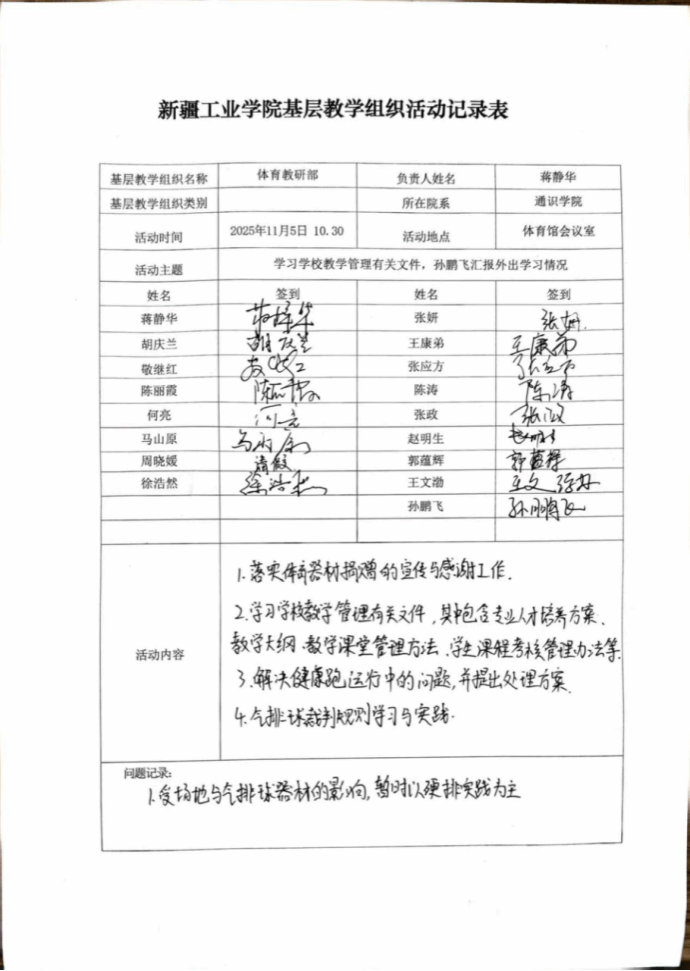 新疆工业学院基层教学组织活动记录表
基层教学组织名称 体育教研部 负责人姓名 蒋静华
基层教学组织类别 所在院系 通识学院
活动时间 2025年11月5日 10.30 活动地点 体育馆会议室
活动主题 学习学校教学管理有关文件，孙鹏飞汇报外出学习情况
姓名 签到 姓名 签到
蒋静华 蒋静华 张妍 张妍
胡庆兰 胡庆兰 王康弟 王康弟
敬继红 敬继红 张应方 张应方
陈丽霞 陈丽霞 陈涛 陈涛
何亮 何亮 张政 张政
马山原 马山原 赵明生 赵明生
周晓媛 请假 郭蕴辉 郭蕴辉
徐浩然 徐浩然 王文渤 王文渤
孙鹏飞 孙鹏飞
活动内容
1.落实体育器材捐赠的宣传与感谢工作.
2.学习学校教学管理有关文件，其中包含专业人才培养方案、
教学大纲、教学课堂管理方法、学生课程考核管理办法等.
3.解决健康跑运行中的问题,并提出处理方案.
4.气排球裁判规则学习与实践.
问题记录:
1.受场地与气排球器材的影响,暂时以硬排实践为主